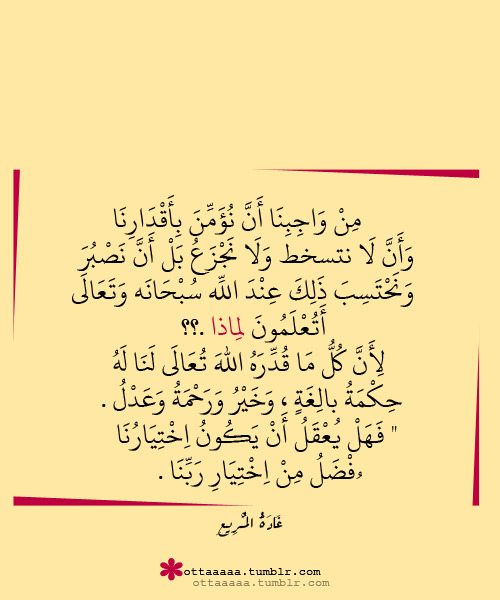 مِنْ وَاجِبِنَا أَنَّ نُؤَمِّنَ بِأَقْدَارِنَا
وَأَنَّ لَا نتسخط وَلَا نَجْزَعُ بَلْ أَنَّ نَصْبُرَ
وَنَحْتَسِبَ ذَلِكَ عِنْدَ اللَّه سُبْحَانَه وَتَعَالَى
أَتُعْلَمُونَ لِماذا .؟؟
لِأَنَّ كُلُّ مَا قُدِّرَهُ اللهَ تُعَالَى لَنَا لَهُ
حِكْمَةُ بالِغَةٍ ، وَخَيْرُ وَرَحْمَةُ وَعَدْلُ .
" فَهَلْ يُعْقَلُ أَنْ يَكُونُ اِخْتِيَارُنَا
ءُفْضَلُ مِنْ اِخْتِيَارِ رَبِّنَا .
غَادَةُ المْرِيعِ
ottaaaaa.tumblr.com
ottaaaaa.tumblr.com